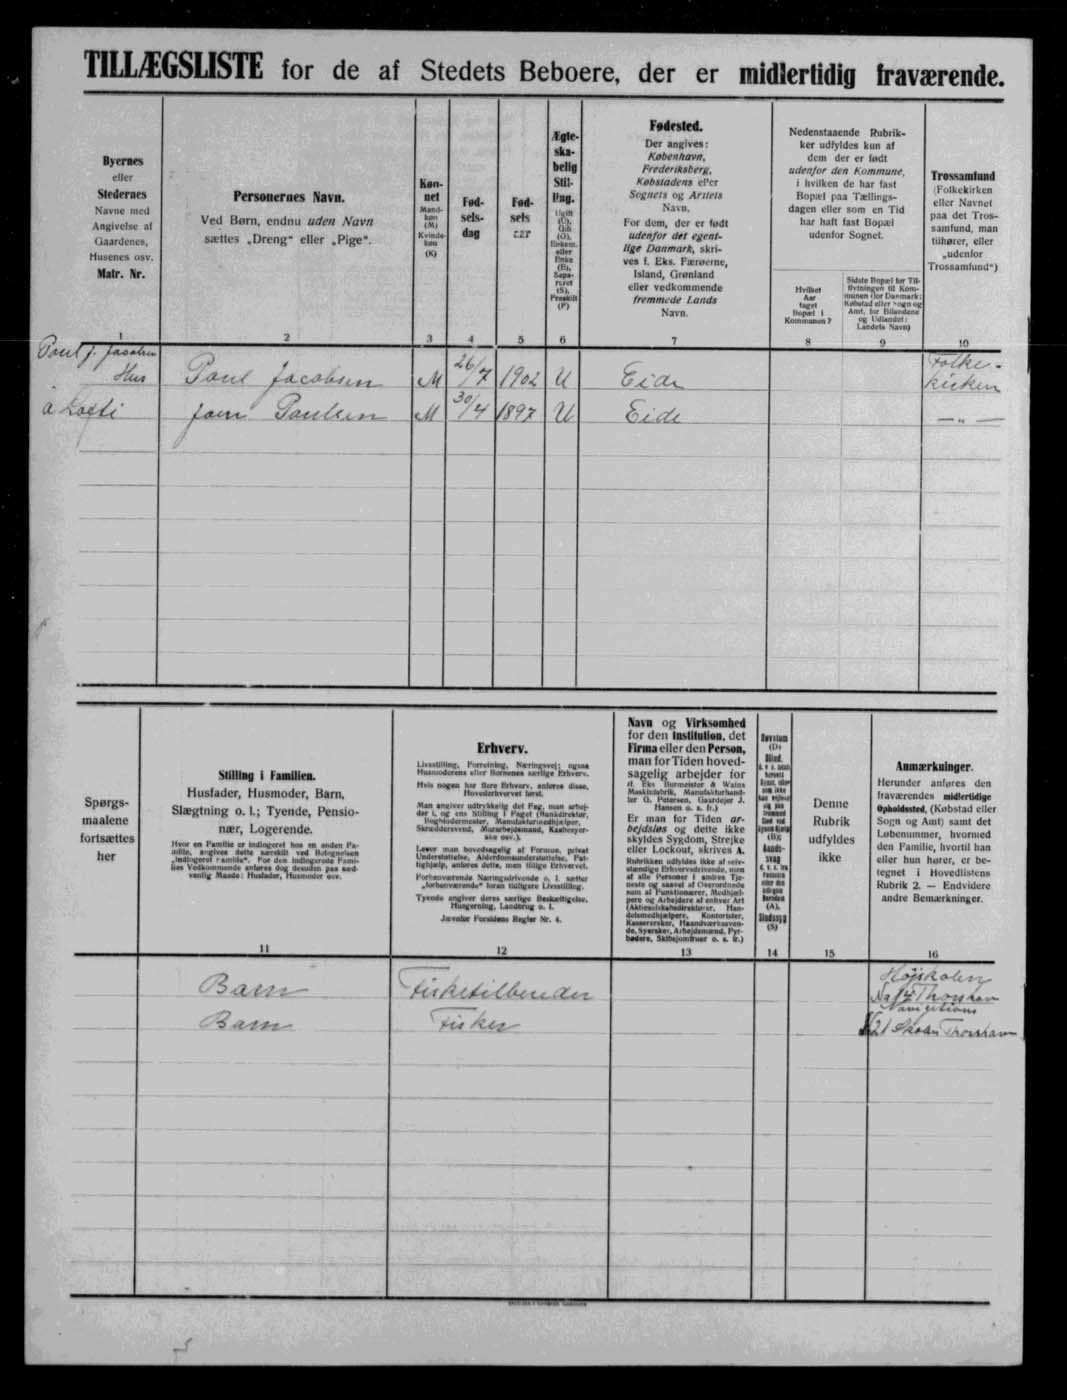 TILLÆGSLISTE for de af Stedets Beboere, der er midlertidig fraværende.
Byernes
eller
Stedernes
Navne med
Angivelse af
Gaardenes,
Husenes osv.
Matr. Nr.
1
Personernes Navn.
Ved Børn, endnu uden Navn
sættes „Dreng" eller „Pige".
2
Køn-
net
Mand-
køn
(M)
Kvinde-
køn
(K)
3
Fød-
sels-
dag
4
Fød-
sels
aar
5
Ægte-
ska-
belig
Stil-
ling.
Ugift
(U),
Gift
(G),
Enkem.
eller
Enke
(E),
Sepa-
reret
(S),
Fraskilt
(F)
6
Fødested.
Der angives:
København,
Frederiksberg,
Købstadens eller
Sognets og Amtets
Navn.
For dem, der er født
udenfor det egent-
lige Danmark, skri-
ves f. Eks. Færøerne,
Island, Grønland
eller vedkommende
fremmede Lands
Navn.
7
Nedenstaaende Rubrik-
ker udfyldes kun af
dem der er født
udenfor den Kommune,
i hvilken de har fast
Bopæl paa Tællings-
dagen eller som en Tid
har haft fast Bopæl
udenfor Sognet.
Hvilket
Aar
taget
Bopæl i
Kommunen?
8
Sidste Bopæl før Til-
flytningen til Kom-
munen (for Danmark:
Købstad eller Sogn og
Amt, for Bilandene
og Udlandet:
Landets Navn)
9
Trossamfund
(Folkekirken
eller Navnet
paa det Tros-
samfund, man
tilhører, eller
„udenfor
Trossamfund")
10
Poul J. Jacobsen
Hus Poul Jacobsen M 26/7 1902 U Eide Folke-
kirken
á Lofti Joen Poulsen M 30/4 1897 U Eide — „ —
Spørgs-
maalene
fortsættes
her
Stilling i Familien.
Husfader, Husmoder, Barn,
Slægtning o. l.; Tyende, Pensio-
nær, Logerende.
Hvor en Familie er indlogeret hos en anden Fa-
milie, angives dette særskilt ved Betegnelsen
„indlogeret Familie". For den indlogerede Fami-
lies Vedkommende anføres dog desuden paa sæd-
vanlig Maade: Husfader, Husmoder osv.
11
Erhverv.
Livsstilling, Forretning, Næringsvej; ogsaa
Husmoderens eller Børnenes særlige Erhverv.
Hvis nogen har flere Erhverv, anføres disse,
Hovederhvervet først.
Man angiver udtrykkelig det Fag, man arbej-
der i, og ens Stilling i Faget (Bankdirektør,
Boghholdermester, Manufakturmedhjælper,
Skræddersvend, Murarbejdsmand, Kasbesyer-
ske osv.).
Lever man hovedsagelig af Formue, privat
Understøttelse, Alderdomsunderstøttelse, Fat-
tighjælp, anføres dette, men tillige Erhvervet.
Forhenværende Næringsdrivende o. l. sætter
„forhenværende" foran tidligere Livsstilling.
Tyende angiver deres særlige Beskæftigelse,
Husgerning, Landbrug o. l.
Jævnfør Forsidens Regler Nr. 4.
12
Navn og Virksomhed
for den Institution, det
Firma eller den Person,
man for Tiden hoved-
sagelig arbejder for
(f. Eks Burmeister & Wains
Maskinfabrik, Manufakturhand-
ler G. Petersen, Gaardejer J.
Hansen o. s. fr.)
Er man for Tiden ar-
bejdsløs og dette ikke
skyldes Sygdom, Strejke
eller Lockout, skrives A.
Rubrikken udfyldes ikke af selv-
stændige Erhvervsdrivende, men
af alle Personer i andres Tje-
neste og saavel af Overordnede
som af Funktionærer, Medhjæl-
pere og Arbejdere af enhver Art
(Aktieselskabsdirektører, Han-
delsmedhjælpere, Kontorister,
Kassererrsker, Haandværkssven-
de, Syersker, Arbejdsmænd, Fyr-
bødere, Skibsjomfruer o. s. fr.)
13
14
Denne
Rubrik
udfyldes
ikke
15
Anmærkninger.
Herunder anføres den
fraværendes midlertidige
Opholdssted, (Købstad eller
Sogn og Amt) samt det
Løbenummer, hvormed
den Familie, hvortil han
eller hun hører, er be-
tegnet i Hovedlistens
Rubrik 2. — Endvidere
andre Bemærkninger.
16
Barn Fisketilbereder Højskolen
Thorshavn
Barn Fisker Navigations
21 Skolen Thorshavn